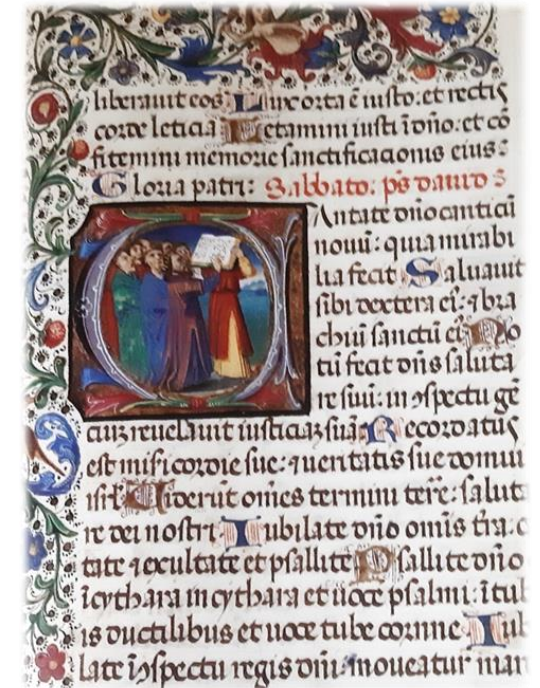 liberauit eos Lux orta ē iusto: et rectis
corde leticia Letamini iusti ī dño: et cō
fitemini memorie sanctificacionis eius:
Gloria patri: Sabbato: ps dauid
Cantate dño canticū
nouū: quia mirabi
lia fecit Saluauit
sibi dextera ei⁹: ⁊ bra
chiū sanctū ei⁹ No
tū fecit dñs saluta
re suū: in ɔspectu gē
ciuꝫ reuelauit iusticiaꝫ suā Recordatus
est mīsīcordie sue: ⁊ ueritatis sue domui
isrł Uiderūt om̄es termini terr̄e: saluta
re dei nostri: Iubilate dño omīs tr̄a: c
tate ⁊ exultate et psallite Psallite dño
ī cythara in cythara et uoce psalmi: ī tub
is ductilibus et uoce tube cornee: Iub
late ī ɔspectu regis dñi: moueatur mar